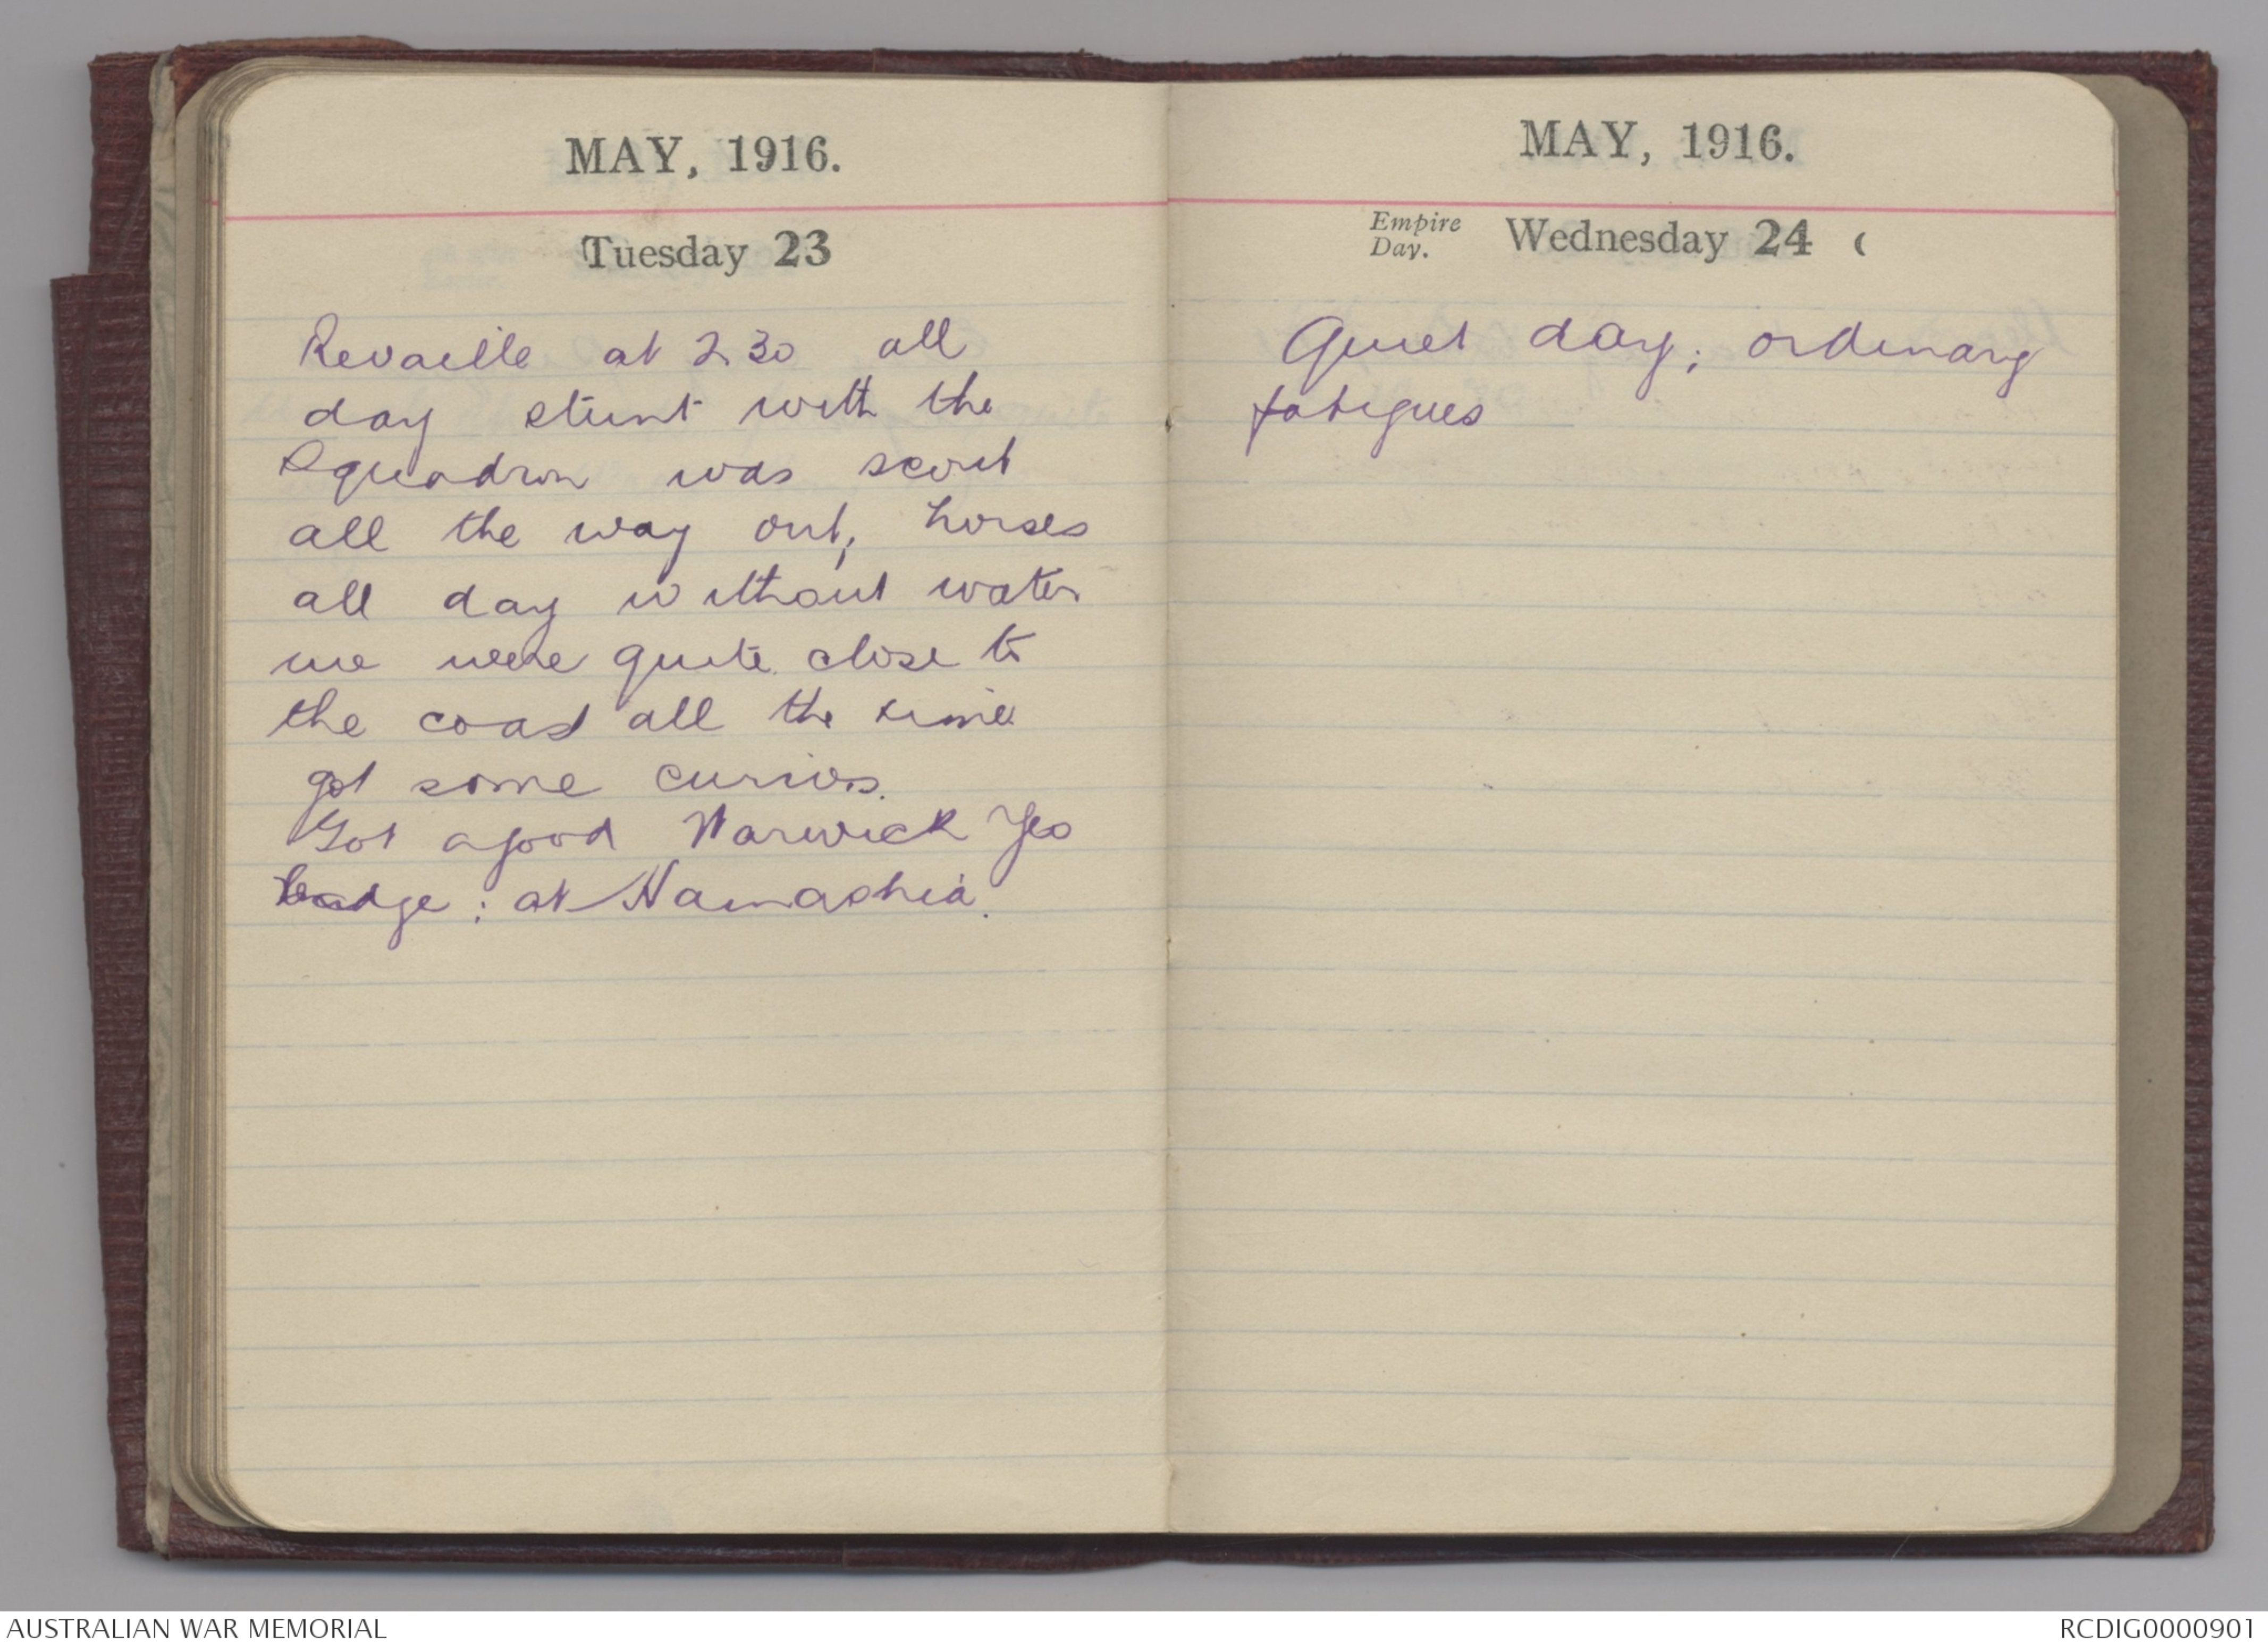 MAY, 1916.
Tuesday 23
Revaille at 2.30 all
day stunt with the
Squadron was scout
all the way out, horses
all day without water
we were quite close to
the coast all the time
got some curios.
Got a good Warwick Yeo
badge : at Hamashia.
MAY, 1916.
Empire Day. Wednesday 24 (
Quiet day; ordinary
fatigues
AUSTRALIAN WAR MEMORIAL
RCDIG0000901